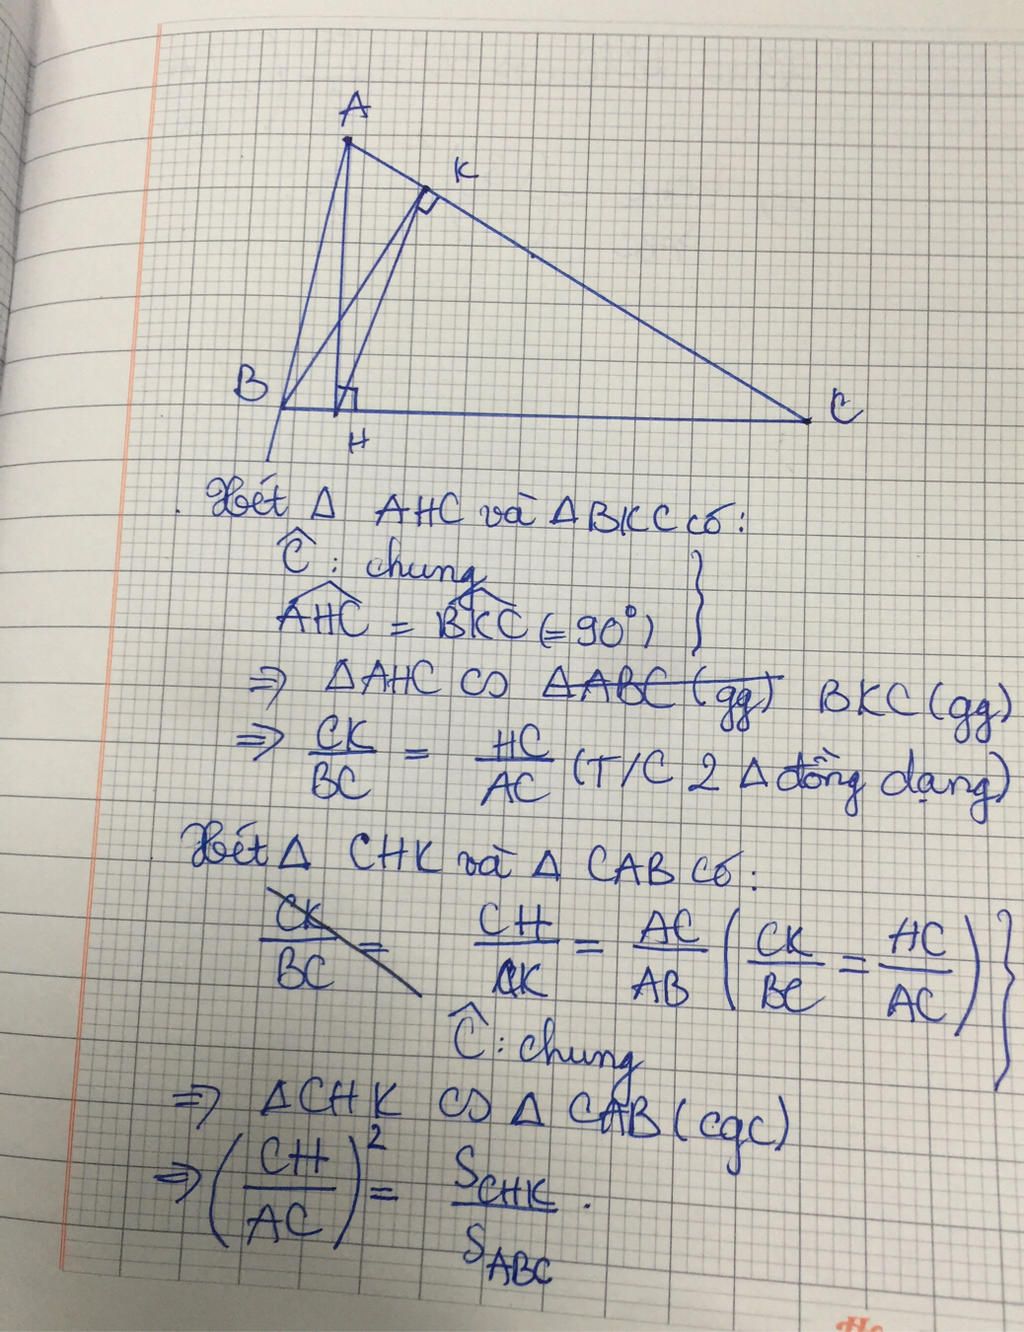 A
K
B
H
C
Xét Δ AHC và Δ BKC có:
Ĉ: chung
AHC = BKC (= 90°)
⇒ ΔAHC ∽ ΔABC (gg) BKC (gg)
⇒ CK/BC = HC/AC (T/C 2 Δ đồng dạng)
Xét Δ CHK và Δ CAB có:
CK/BC = CH/CK = AC/AB (CK/BC = HC/AC)
Ĉ: chung
⇒ ΔCHK ∽ Δ CAB (cgc)
⇒ (CH/AC)² = S_CHK/S_ABC.